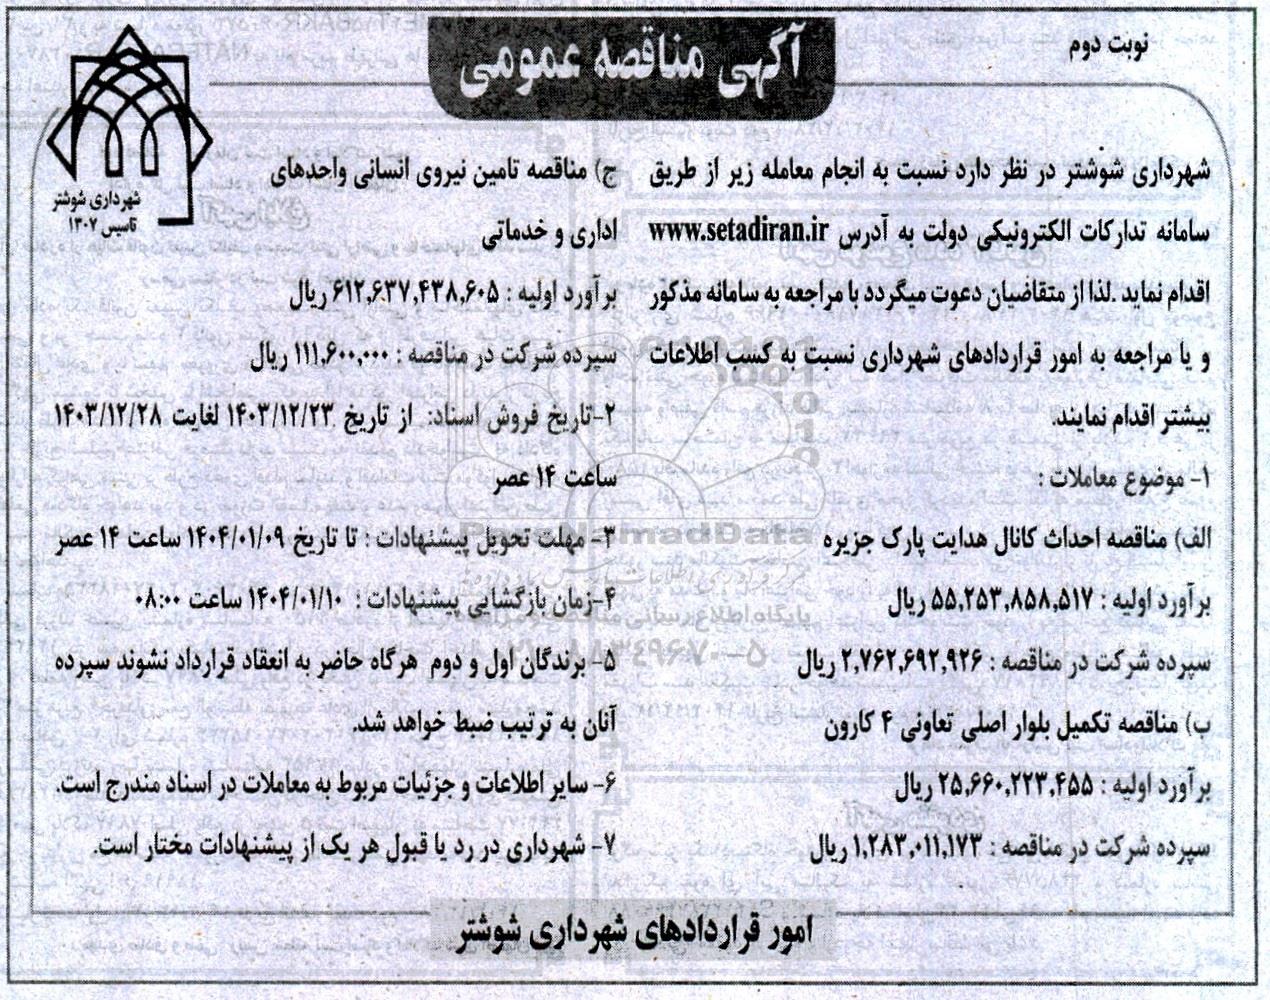 نوبت دوم
آگهی مناقصه عمومی
شهرداری شوشتر
تاسیس ۱۳۰۷
شهرداری شوشتر در نظر دارد نسبت به انجام معامله زیر از طریق
سامانه تدارکات الکترونیکی دولت به آدرس www.setadiran.ir
اقدام نماید .لذا از متقاضیان دعوت میگردد با مراجعه به سامانه مذکور
و یا مراجعه به امور قراردادهای شهرداری نسبت به کسب اطلاعات
بیشتر اقدام نمایند.
۱- موضوع معاملات :
الف) مناقصه احداث کانال هدایت پارک جزیره
برآورد اولیه : ۵۵,۲۵۳,۸۵۸,۵۱۷ ریال
سپرده شرکت در مناقصه : ۲,۷۶۲,۶۹۲,۹۲۶ ریال
ب) مناقصه تکمیل بلوار اصلی تعاونی ۴ کارون
برآورد اولیه : ۲۵,۶۶۰,۲۲۳,۴۵۵ ریال
سپرده شرکت در مناقصه : ۱,۲۸۳,۰۱۱,۱۷۳ ریال
ج) مناقصه تامین نیروی انسانی واحدهای
اداری و خدماتی
برآورد اولیه : ۶۱۲,۶۳۷,۴۳۸,۶۰۵ ریال
سپرده شرکت در مناقصه : ۱۱۱,۶۰۰,۰۰۰ ریال
۲-تاریخ فروش اسناد: از تاریخ ۱۴۰۳/۱۲/۲۳ لغایت ۱۴۰۳/۱۲/۲۸
ساعت ۱۴ عصر
۳- مهلت تحویل پیشنهادات : تا تاریخ ۱۴۰۴/۰۱/۰۹ ساعت ۱۴ عصر
۴-زمان بازگشایی پیشنهادات : ۱۴۰۴/۰۱/۱۰ ساعت ۰۸:۰۰
۵- برندگان اول و دوم هرگاه حاضر به انعقاد قرارداد نشوند سپرده
آنان به ترتیب ضبط خواهد شد.
۶- سایر اطلاعات و جزئیات مربوط به معاملات در اسناد مندرج است.
۷- شهرداری در رد یا قبول هر یک از پیشنهادات مختار است.
امور قراردادهای شهرداری شوشتر
ParsNamadData